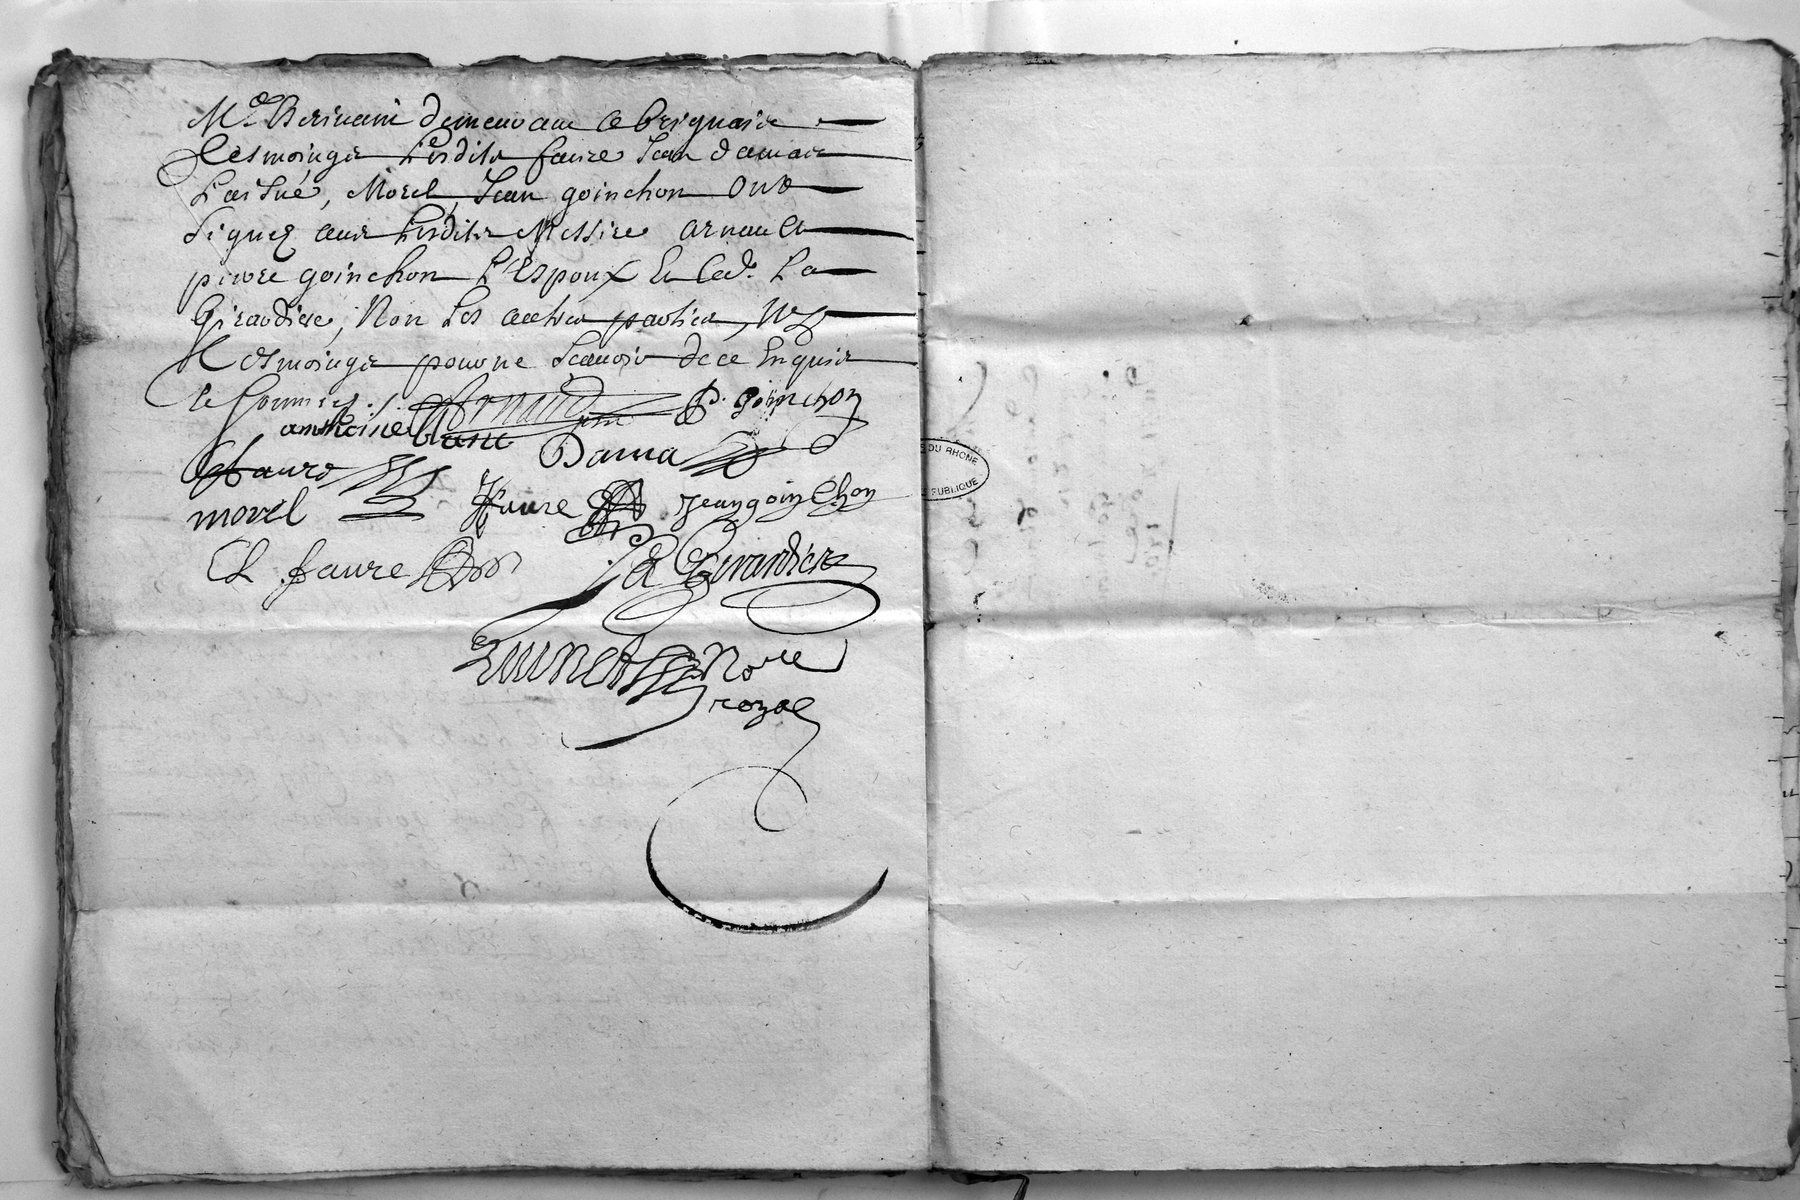 Md Escrivain demeurant a brignais
tesmoings lesdits faure Jean damas
Laisné, Morel, Jean goinchon ont
signez avec lesdits Messire arnault
pierre goinchon L'Espoux Et led. La
Girardière, Non les autres parties, Ny
tesmoings pour ne scavoir de ce Enquis
et sommés.
Arnaud
P. goinchon
anthoine blanc
Dama
faure
morel
faure
Jeangoinchon
Cl faure
La Girardiere
Nore
royal
E DU RHONE
PUBLIQUE